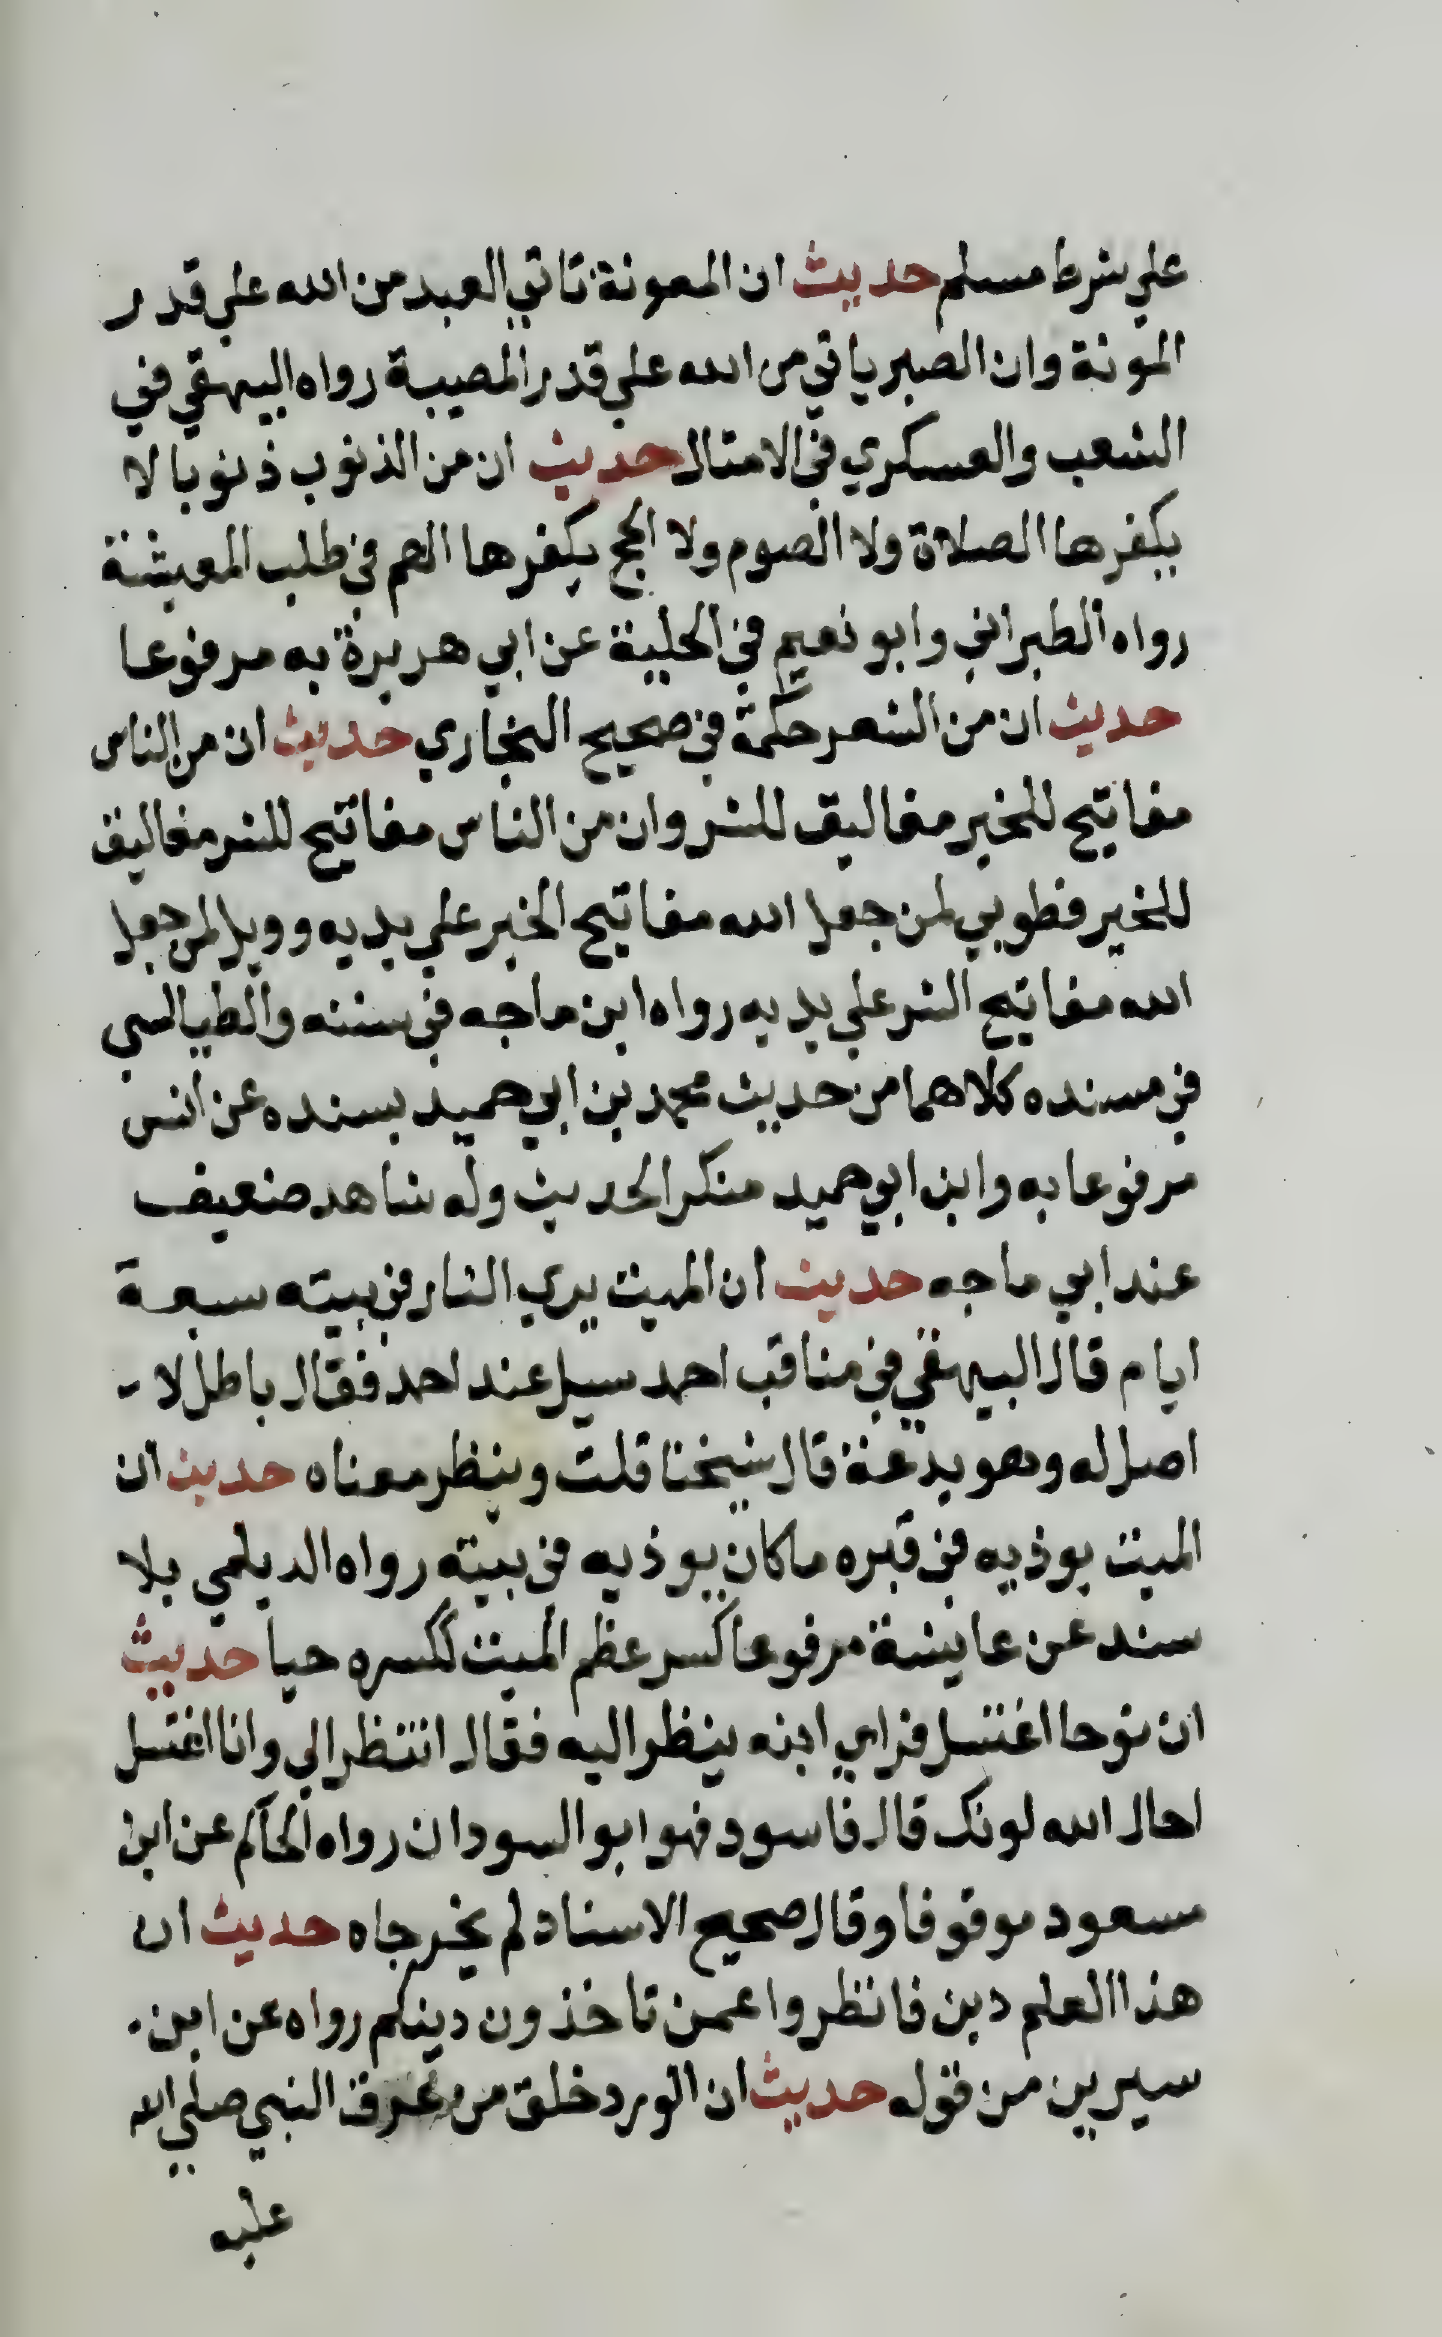 علي شرط مسلم حديث ان المعونة تاتي العبد من الله علي قدر
المونة وان الصبر ياتي من الله علي قدر المصيبة رواه البيهقي في
الشعب والعسكري في الامثال حديث ان من الذنوب ذنوبا لا
يكفرها الصلاة ولا الصوم ولا الحج يكفرها الهم في طلب المعيشة
رواه الطبراني وابو نعيم في الحلية عن ابي هريرة به مرفوعا
حديث ان من الشعر حكمة في صحيح البخاري حديث ان من الناس
مفاتيح للخير مغاليق للشر وان من الناس مفاتيح للشر مغاليق
للخير فطوبي لمن جعل الله مفاتيح الخير علي يديه وويل لمن جعل
الله مفاتيح الشر علي يديه رواه ابن ماجه في سننه والطيالسي
في مسنده كلاهما من حديث محمد بن ابي حميد بسنده عن انس
مرفوعا به وابن ابي حميد منكر الحديث وله شاهد ضعيف
عند ابي ماجه حديث ان الميت يري النار في بيته سبعة
ايام قال البيهقي في مناقب احمد سيل عند احمد فقال باطل لا
اصل له وهو بدعة قال شيخنا قلت وينظر معناه حديث ان
الميت يوذيه في قبره ما كان يوذيه في بيته رواه الديلمي بلا
سند عن عايشة مرفوعا كسر عظم الميت ككسره حيا حديث
ان نوحا اغتسل فراي ابنه ينظر اليه فقال انتظر الي وانا اغتسل
احال الله لونك قال فاسود فهو ابو السودان رواه الحاكم عن ابن
مسعود موقوفا وقال صحيح الاسناد لم يخرجاه حديث ان
هذا العلم دين فانظروا عمن تاخذون دينكم رواه عن ابن
سيرين من قوله حديث ان الورد خلق من عرق النبي صلي الله
عليه